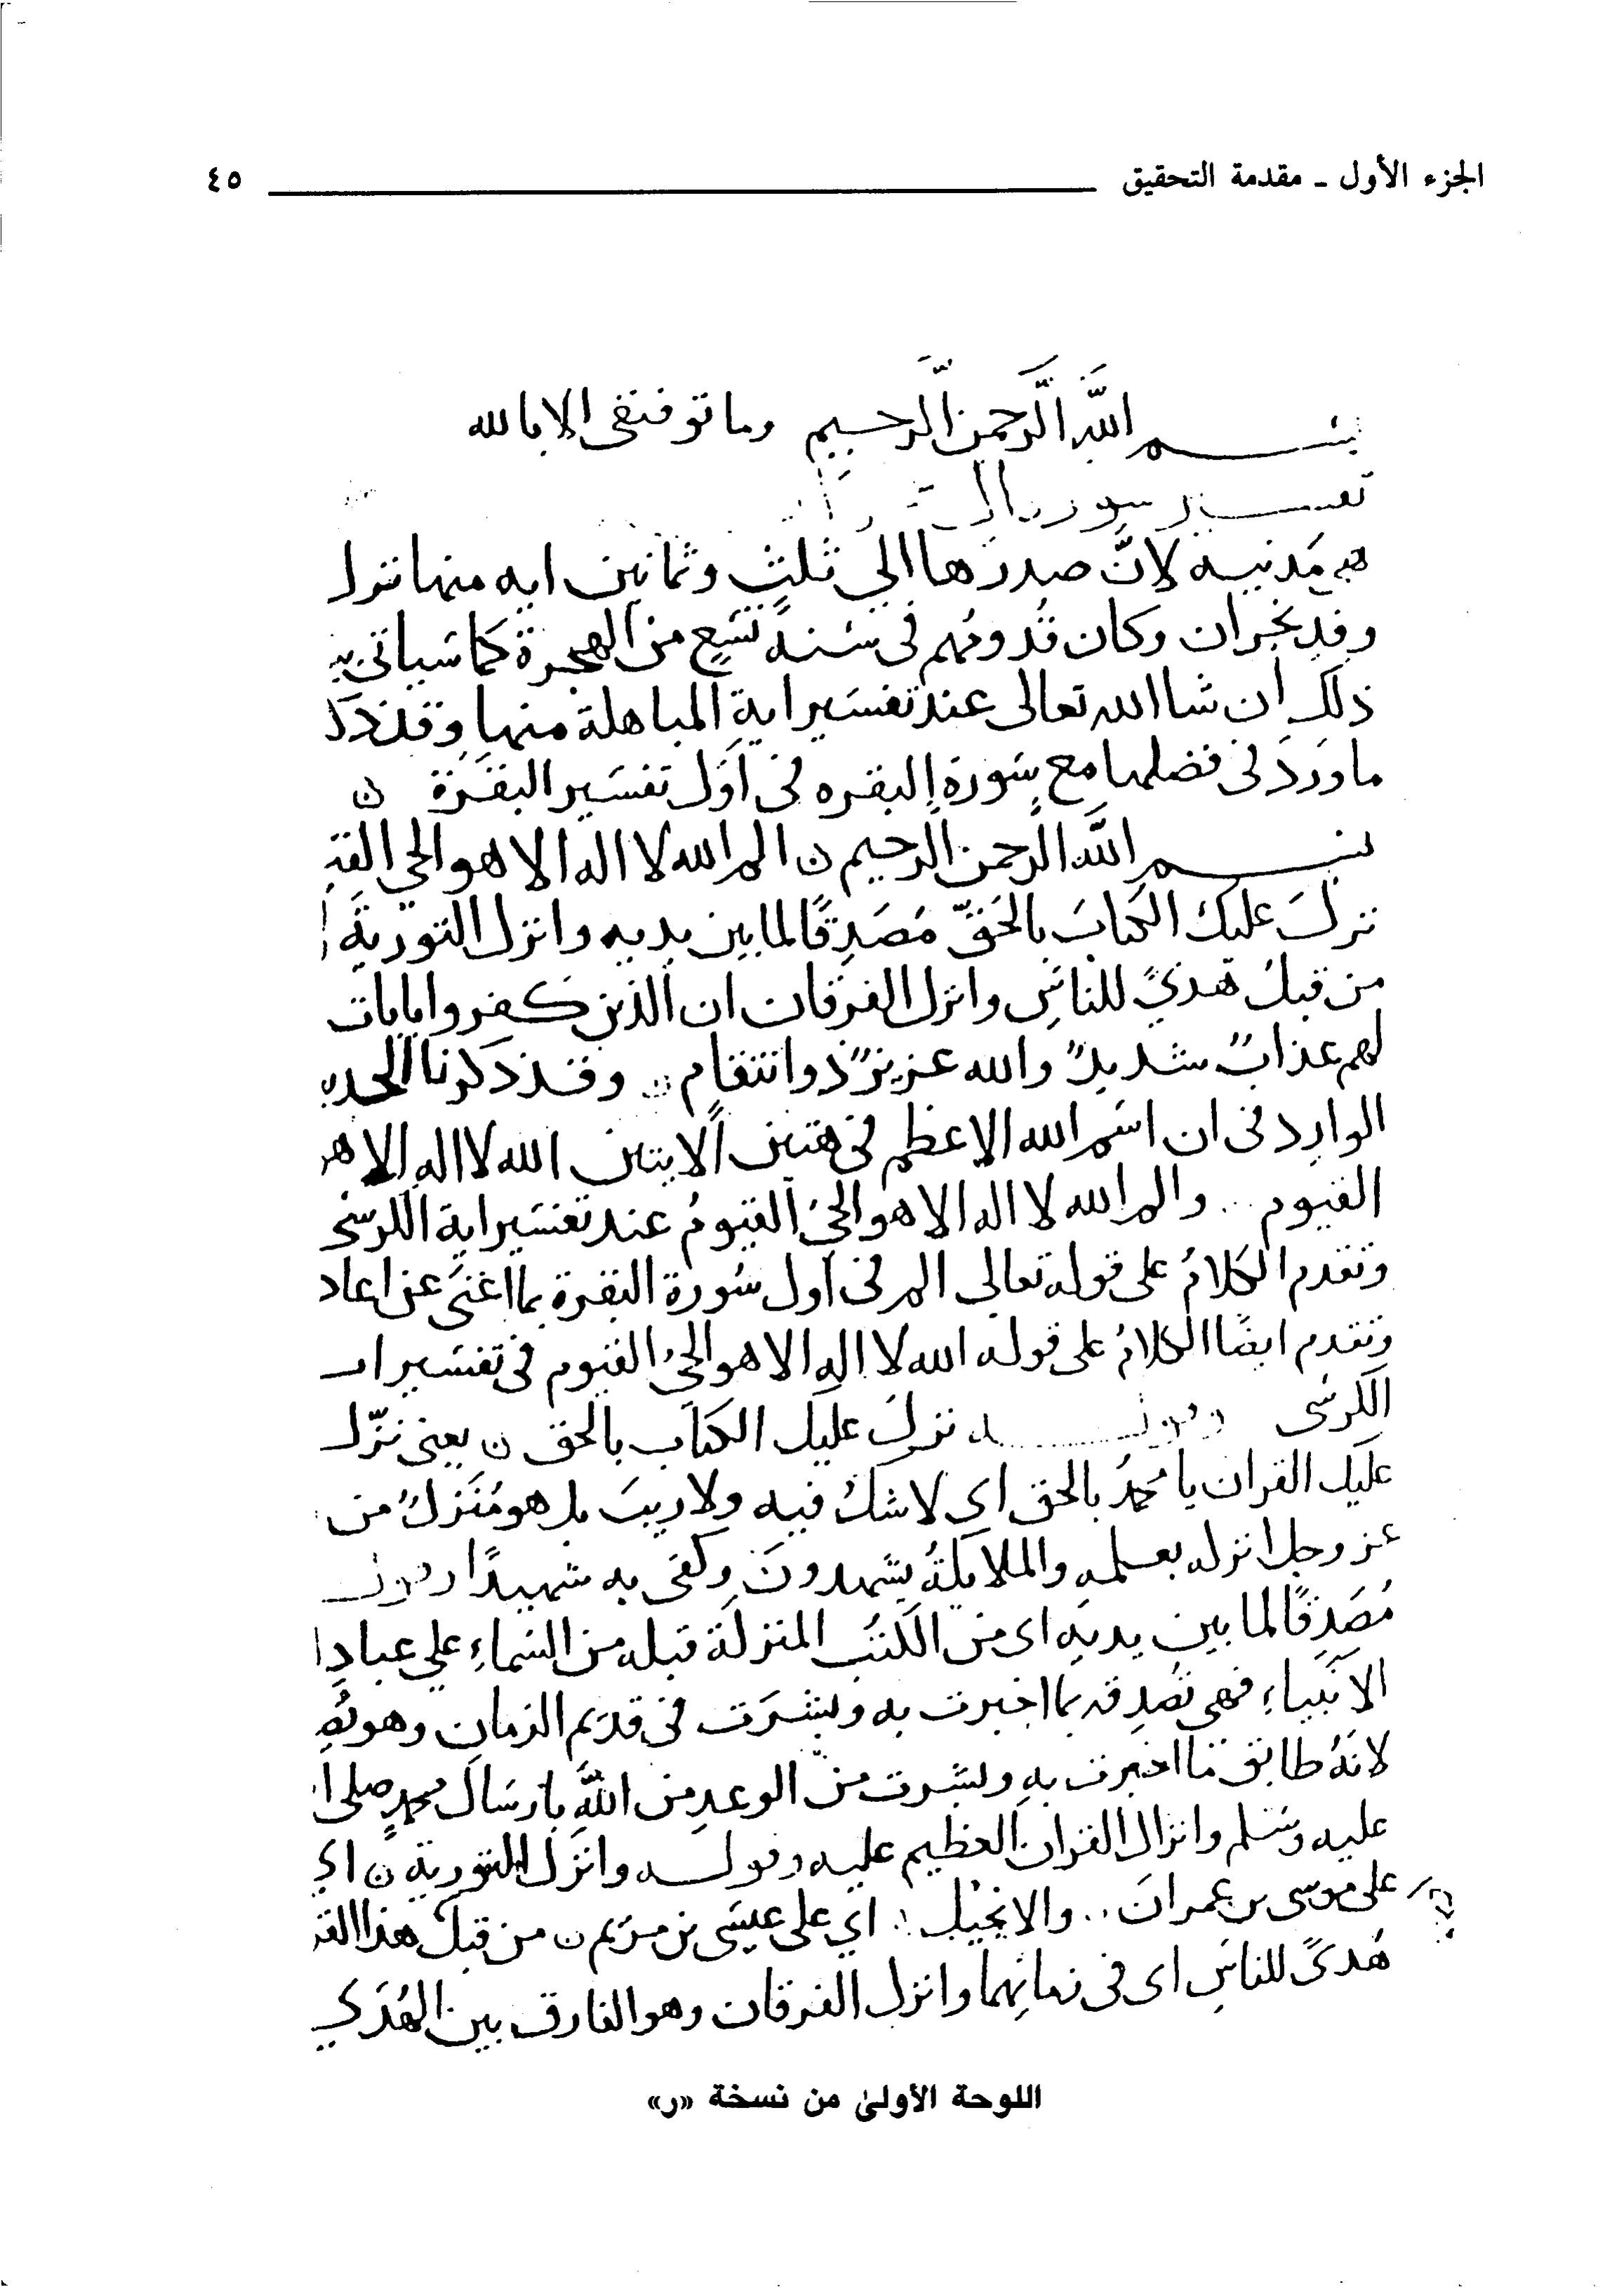 الجزء الأول - مقدمة التحقيق ٤٥
بسم اللَّه الرَّحمن الرَّحيم وما توفيقى الا بالله
تفسير سورة
هى مَدنيه لانَّ صدرَها الى ثلثٍ وثمانين ايه منها نزل
وفدِ نجران وكان قُدومُهم فى سَنة تسَعٍ من الهجرة كما سَياتى
ذلك ان شا الله تعالى عند تفسَير اية المباهلة منها وقد ذكر
ما ورَدَ فى فضلها مع سَورة البقره فى اوَل تفسَير البقَرة ن
بسم اللَّه الرحمن الرحيم ن الم الله لا اله الا هو الحي
نزلَ عليك الكتابَ بالحَقّ مُصَدِقًا لما بين يديه وانزل التورية
من قبلُ هدىً للناسِ وانزل الفرقان ان الذين كفروا بايات
لهم عذابٌ شديدٌ والله عزيزٌ ذو انتقام ن وقد ذكرنا
الوارِد فى ان اسَم الله الاعظم فى هتين الايتين الله لا اله الا هو
القيوم والم الله لا اله الا هو الحيُ القيومُ عند تفسَير اية الكرسَى
وتقدم الكلامُ على قوله تعالى الم فى اول سُورة البقرة بما اغنَى عن
وتقدم ايضًا الكلامُ على قوله الله لا اله الا هو الحيُ القيوم فى تفسَير
الكرسَى نزلَ عليك الكتاب بالحق ن يعنى نزّل
عليك القران يا محمدُ بالحق اى لا شكَ فيه ولا ريبَ بل هو مُنَزلٌ من
عز وجل انزله بعلمه والملايكةُ يشهدونَ وكفى به شهيدًا
مُصَدِقًا لما بين يديهِ اى من الكتُب المنزلة قبله من السَماءِ على عبادِ
الانبياءِ فهى تصُدِقه بما اخبرت به وبشرَت فى قديم الزمانِ وهو
لانهُ طابق ما اخبرت بهِ وبشرت من الوعدِ من اللَّهِ بارسَال محمدٍ صلى
عليه وسَلم وانزال القران العظيم عليه وقوله وانزَل التورية ن اى
على موسى بن عمرانَ والانجيل اى على عيسَى بن مرَيم ن من قبل هذا
هُدىً للناسِ اى فى زمانِهما وانزل الفرقان وهو الفارق بين الهُدَى
اللوحة الأولىٰ من نسخة «ر»